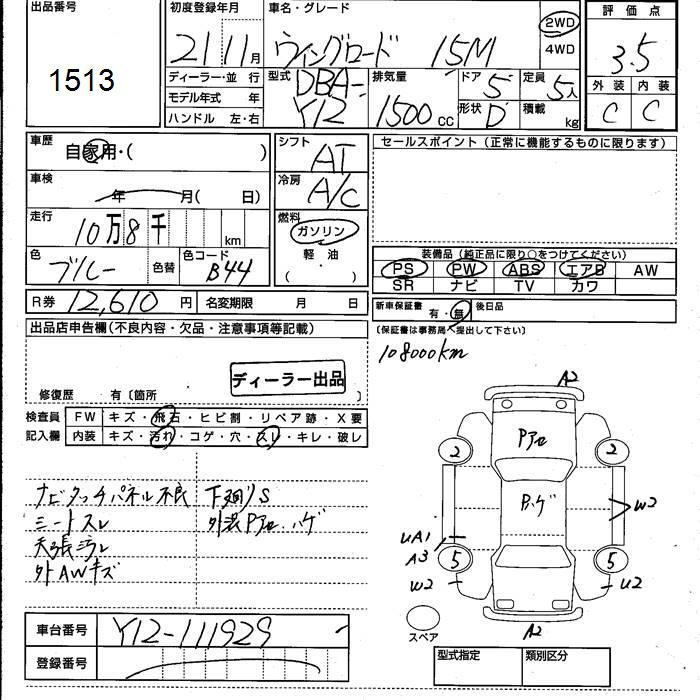 出品番号
1513
初度登録年月
21 11月
車名・グレード
ウィングロード 15M
2WD
4WD
評価点
3.5
外装 内装
C C
ディーラー・並行
モデル年式 年
ハンドル 左・右
型式
DBA-
Y12
排気量
1500cc
ドア 5
形状 D
定員 5人
積載 kg
車歴
自家用・( )
車検
年 月( 日)
走行
10万8千 km
色
ブルー
色替
色コード
B44
シフト
AT
冷房
A/C
燃料
ガソリン
軽油
( )
セールスポイント (正常に機能するものに限ります)
装備品 (純正品に限り○をつけてください)
PS PW ABS エアB AW
SR ナビ TV カワ
R券 12,610円 名変期限 月 日
新車保証書 有・無 後日品
(保証書は事務局へ提出して下さい)
108000km
出品店申告欄(不良内容・欠品・注意事項等記載)
ディーラー出品
修復歴 有〔箇所
検査員
記入欄
FW キズ・飛石・ヒビ割・リペア跡・X要
内装 キズ・汚れ・コゲ・穴・スレ・キレ・破レ
ナビタッチパネル不良
シートスレ
天張汚レ
外AWキズ
下廻りS
外装Pアロ、ハゲ
A2
Pアロ
2 2
Pハゲ
W2
UA1
A3
5 5
W2
U2
A2
スペア
車台番号 Y12-111929
登録番号
型式指定 類別区分